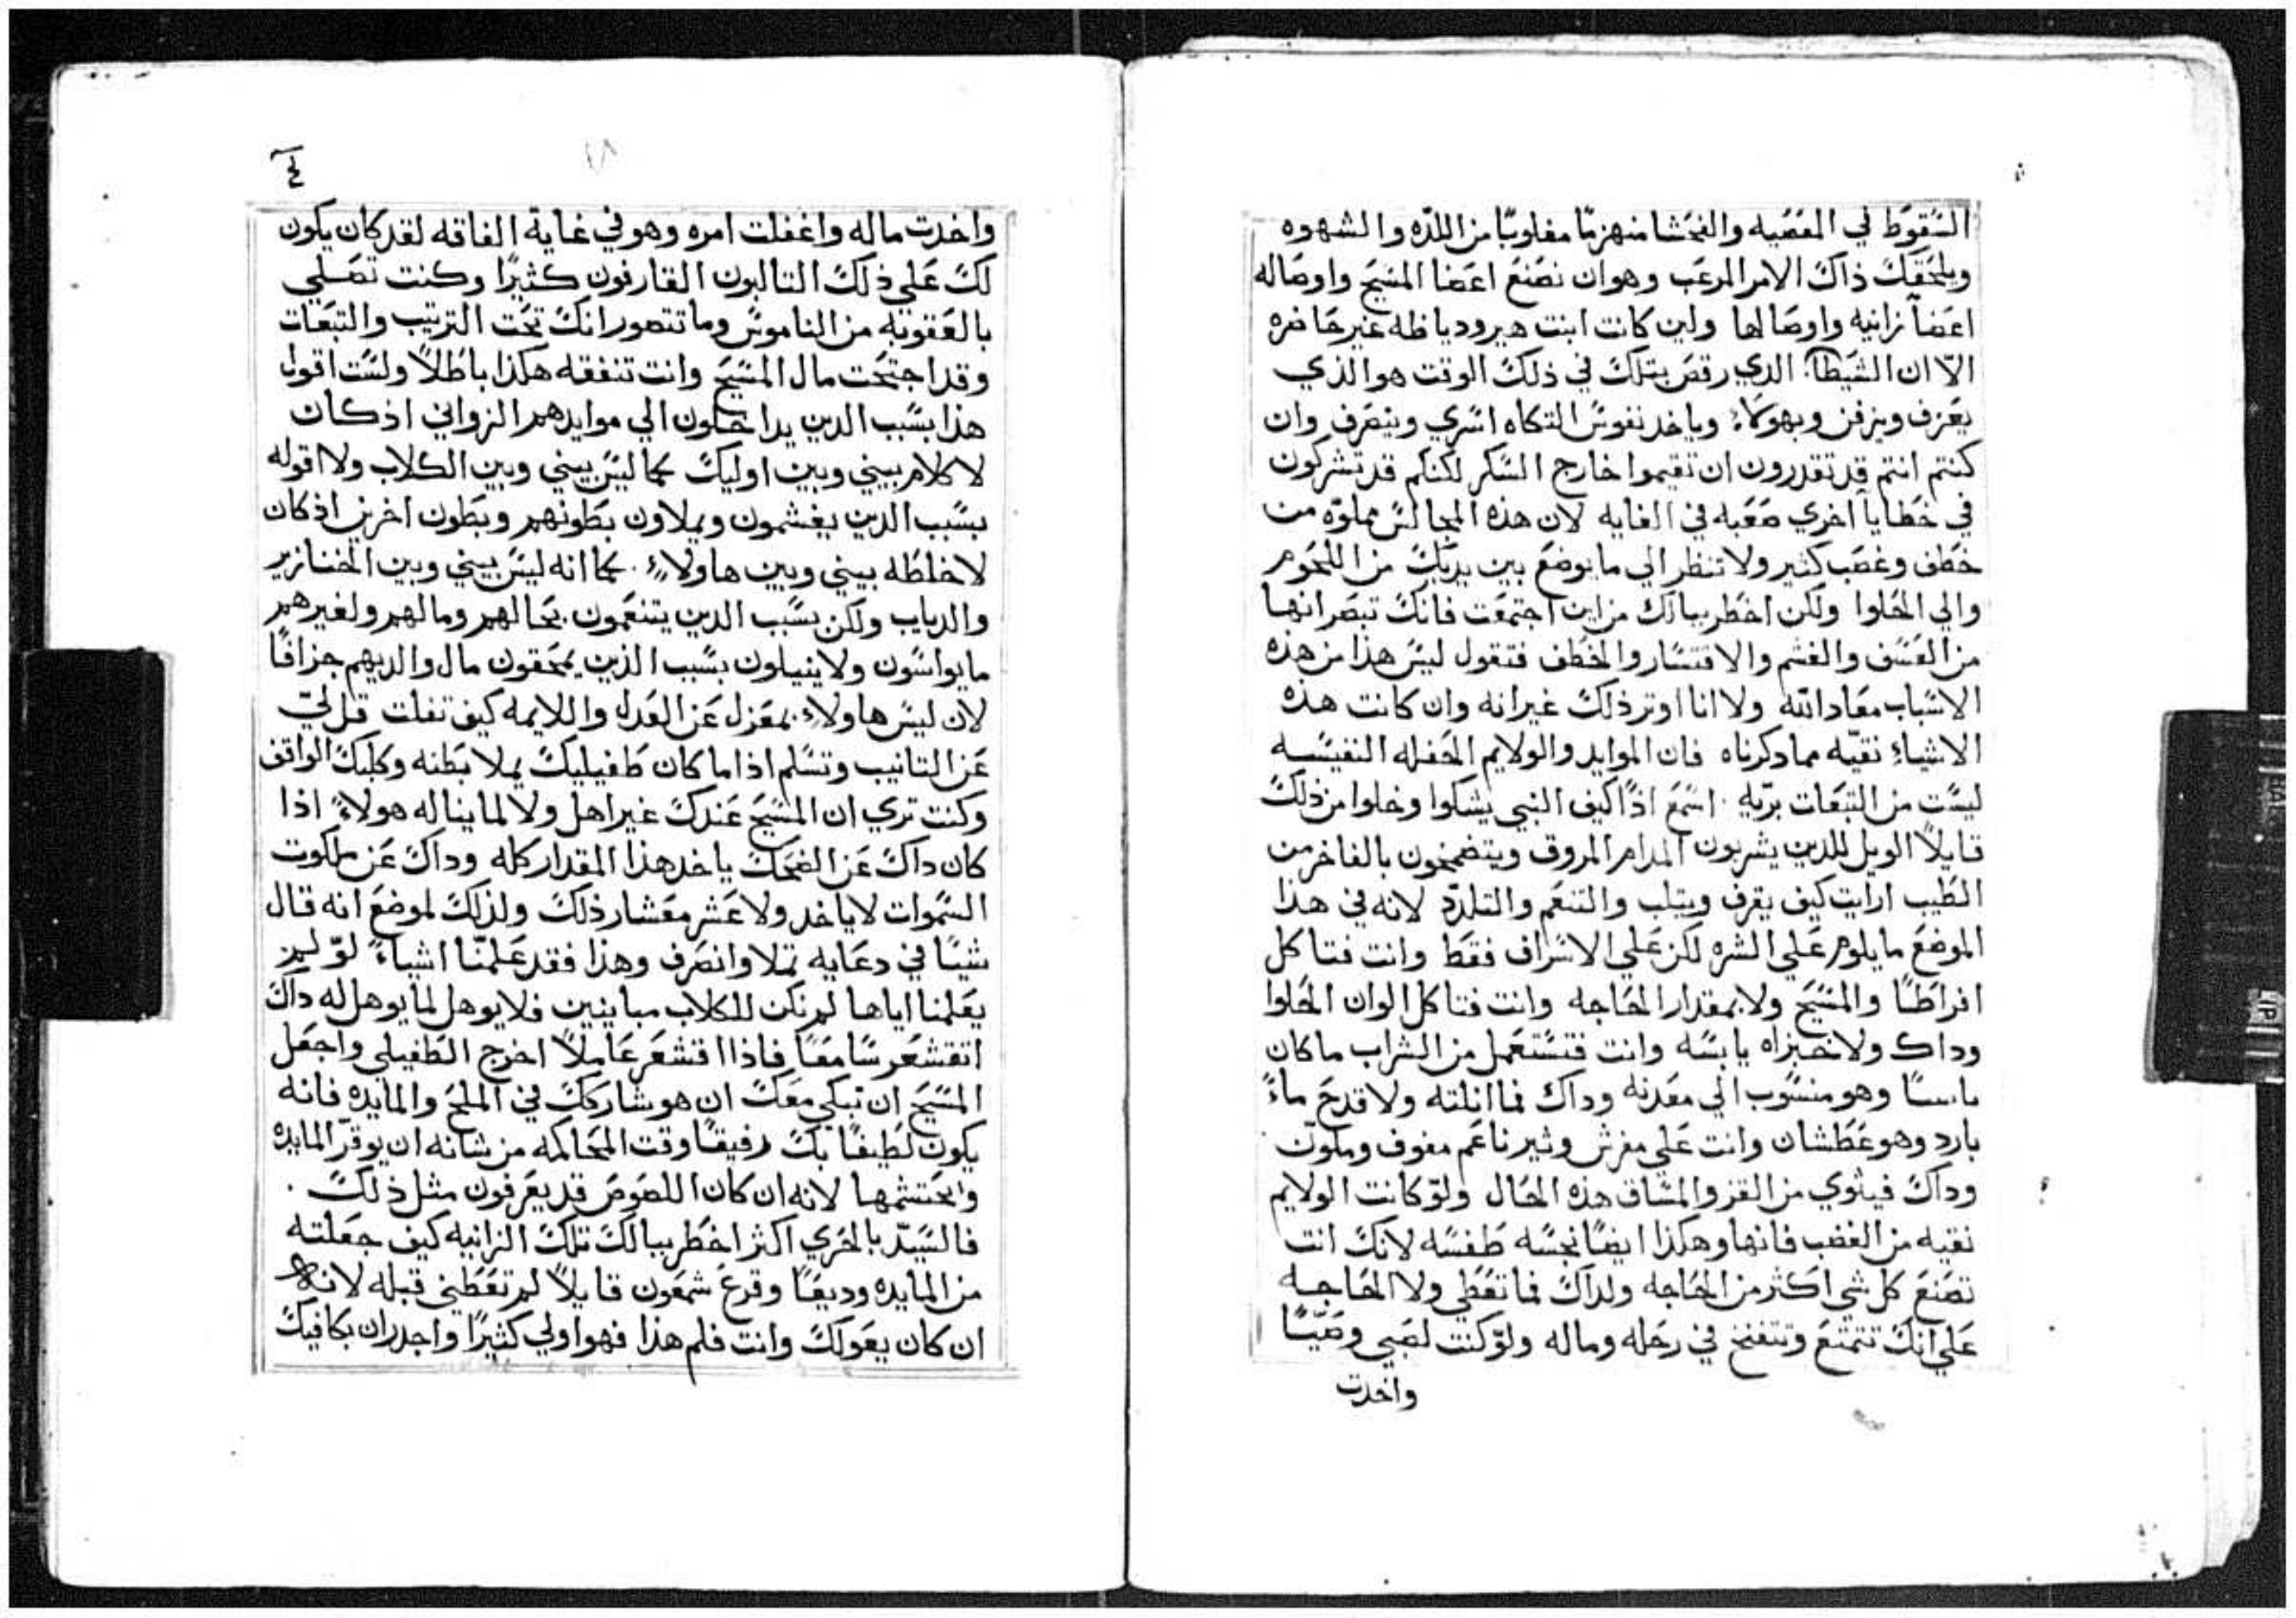 السقوط في المعصيه والفحشا منهزمًا مغلوبًا من اللذه والشهوه
ويلحقك ذاك الامر المرعب وهو ان تصنع اعضا المسيح واوصاله
اعضآ زانيه واوصالها ولين كانت ابنت هيروديا ظه غير حاضره
الّا ان الشيطان الذي رقص بتلك في ذلك الوقت هو الذي
يعزف ويزفن وبهولاء وياخد نفوس التكاه اسري وينصرف وان
كنتم انتم قد تقدرون ان تقيموا خارج السكر لكنكم قد تشركون
في خطايا اخري صعبه في الغايه لان هذه المجالس مملوّه من
خطف وغصب كثير ولا تنظر الي ما يوضع بين يديك من اللحوم
والي الحلوا ولكن اخطر ببالك من اين اجتمعت فانك تبصر انها
من العسف والغشم والاقتسار والخطف فتقول ليس هذا من هذه
الاسباب معاد الله ولا انا اوثر ذلك غير انه وان كانت هذه
الاشياء نقيّه مما دكرناه فان الموايد والولايم الحفله النفيسه
ليست من التبعات بريّه . اسمع اذًا كيف النبي يشكوا وخلوا من ذلك
قايلًا الويل للدين يشربون المدام المروق ويتضمخون بالفاخر من
الطيب ارايت كيف يقرف ويثلب والتنعم والتلذذ لانه في هذا
الموضع ما يلوم علي الشره لكن علي الاسراف فقط وانت فتاكل
افراطًا والمسيح ولا بمقدار الحاجه وانت فتاكل الوان الحلوا
وداك ولا خبزاه يابسه وانت فتستعمل من الشراب ما كان
ماسيا وهو منسوب الي معدنه وداك فما انلته ولا قدح ماءً
بارد وهو عطشان وانت علي مفرش وثير ناعم مفوف وملوّن
وداك فيثوي من القز والمشاق هذه الحال ولو كانت الولايم
نقيه من الغضب فانها وهكذا ايضًا نجسه طفسه لانك انت
تصنع كل شي اكثر من الحاجه ولداك فما تعطي ولا الحاجه
علي انك تتمتع وتتفنخ في رحله وماله ولو كنت لصبي وصيًّا
واخدت
٤
واخدت ماله واغفلت امره وهو في غاية الفاقه لقد كان يكون
لك علي ذلك الثالبون القارفون كثيرًا وكنت تصلي
بالعقوبه من الناموس وما تتصور انك تحت الترتيب والتبعات
وقد اجتحت مال المسيح وانت تنفقه هكذا باطلًا ولست اقول
هذا بسبب الدين يداخلون الي موايدهم الزواني اذ كان
لا كلام بيني وبين اوليك كما ليس بيني وبين الكلاب ولا اقوله
بسبب الدين يغشمون ويملاون بطونهم وبطون اخرين اذ كان
لا خلطه بيني وبين هاولاء . كما انه ليس بيني وبين الخنازير
والدياب ولكن بسبب الدين يتنعمون بحالهم ومالهم ولغيرهم
ما يواسون ولا ينيلون بسبب الذين يمحقون مال والديهم جزافًا
لان ليس هاولاء بمعزل عن العدل واللايمه كيف تفلت قل لي
عن التانيب وتسلم اذا ما كان طفيليك يملا بطنه وكلبك الواقف
وكنت تري ان المسيح عندك غير اهل ولا لما يناله هولاءً اذا
كان داك عن الضحك ياخد هذا المقدار كله وداك عن ملكوت
السموات لا ياخد ولا عشر معشار ذلك ولذلك لموضع انه قال
شيئًا في دعابه تملا وانصرف وهذا فقد علمنا اشياءً لو لم
يعلمنا اياها لم نكن للكلاب مباينين فلا يوهل لما يوهل له داك
اتقشعر سامعًا فاذا اقتشعر عاملًا اخرج الطفيلي واجعل
المسيح ان تبكي معك ان هو شاركك في الملح والمايده فانه
يكون لطيفًا بك رفيقًا وقت المحاكمه من شانه ان يوقر المايده
ويحتشمها لانه ان كان اللصوص قد يعرفون مثل ذلك .
فالسيّد بالحري اكثر اخطر ببالك تلك الزانيه كيف جعلته
من المايده وديعًا وقرع شمعون قايلًا لم تعطيني قبله لانه
ان كان يعولك وانت فلم هذا فهو اولي كثيرًا واجدر ان يكافيك